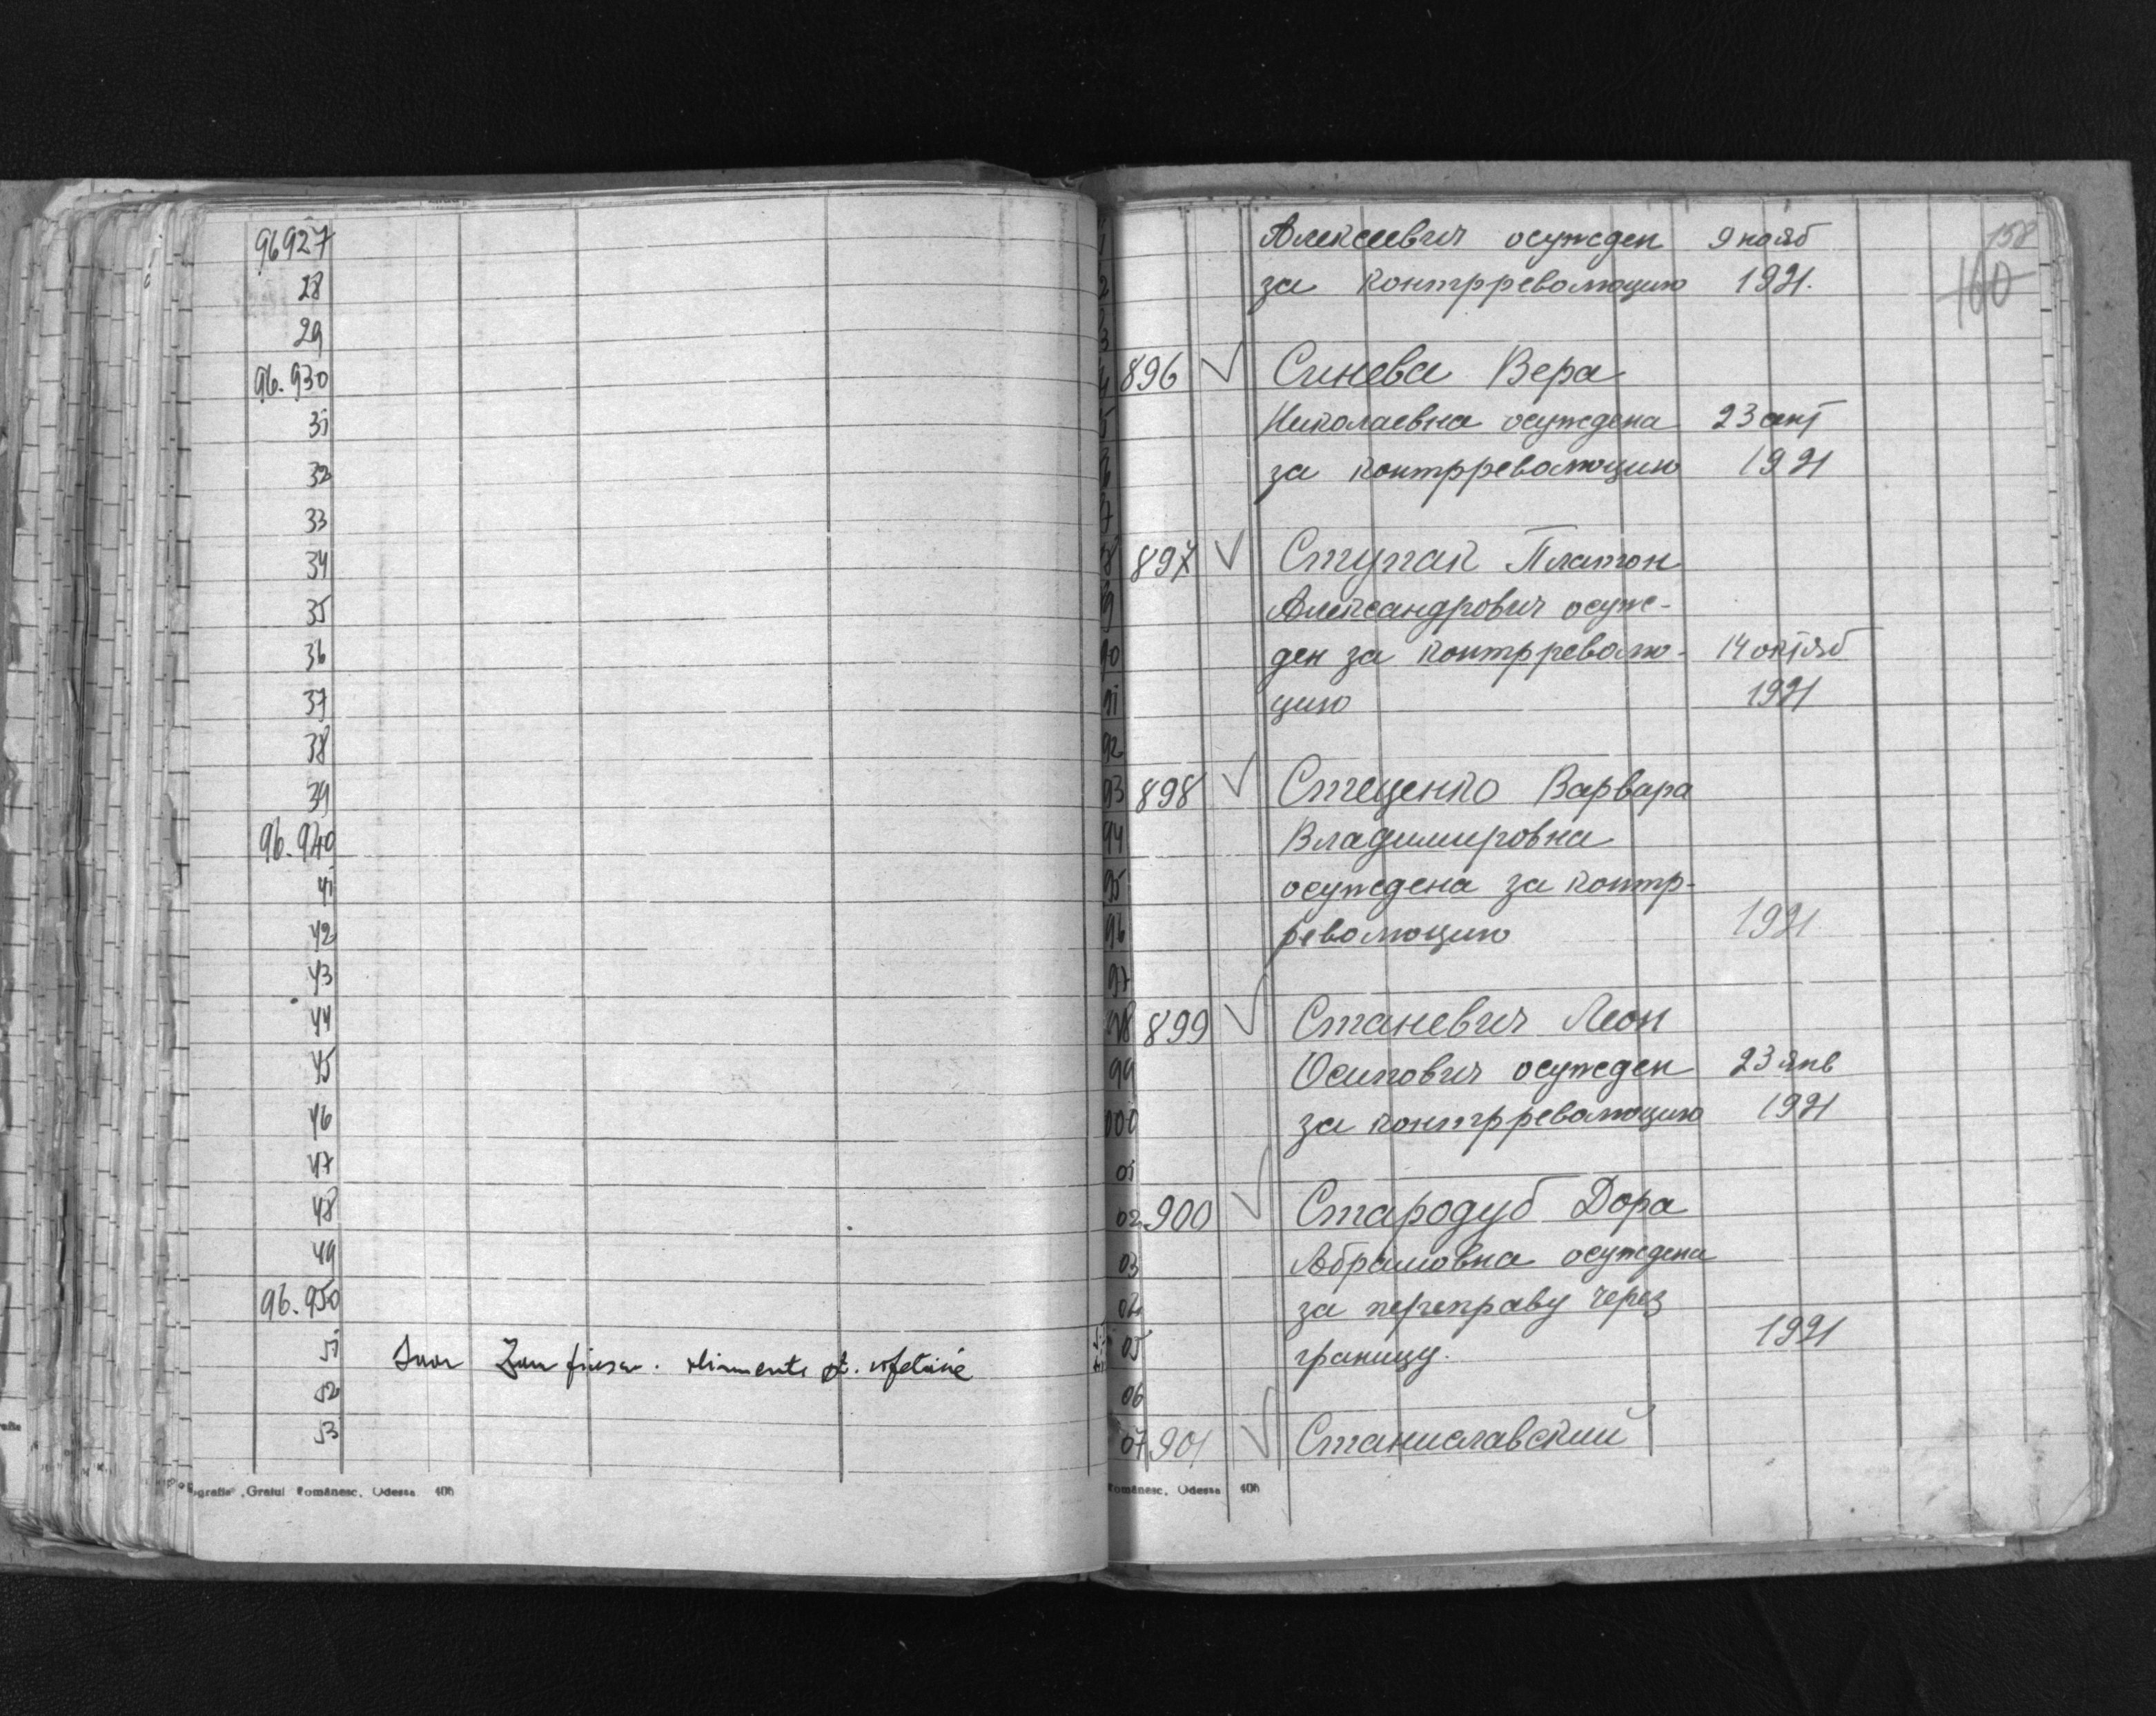 96927
28
29
96.930
31
32
33
34
35
36
37
38
39
96.940
41
42
43
44
45
46
47
48
49
96.950
51
52
53
Gratul Românesc, Odessa 406
158
160
Алексеевич осужден 9 нояб
за контрреволюцию 1921.
896 Синева Вера
Николаевна осуждена 23 окт
за контрреволюцию 1921
897 Ступак Платон
Александрович осуж-
ден за контрреволю- 14 октяб
цию 1921
92
93 898 Стеценко Варвара
94 Владимировна
95 осуждена за контр-
96 революцию 1921
97
98 899 Станевич Леон
99 Осипович осужден 23 янв
000 за контрреволюцию 1921
01
02 900 Стародуб Дора
03 Абрамовна осуждена
04 за переправу через
05 границу. 1921
06
07 901 Станиславский
Românesc, Odessa 406